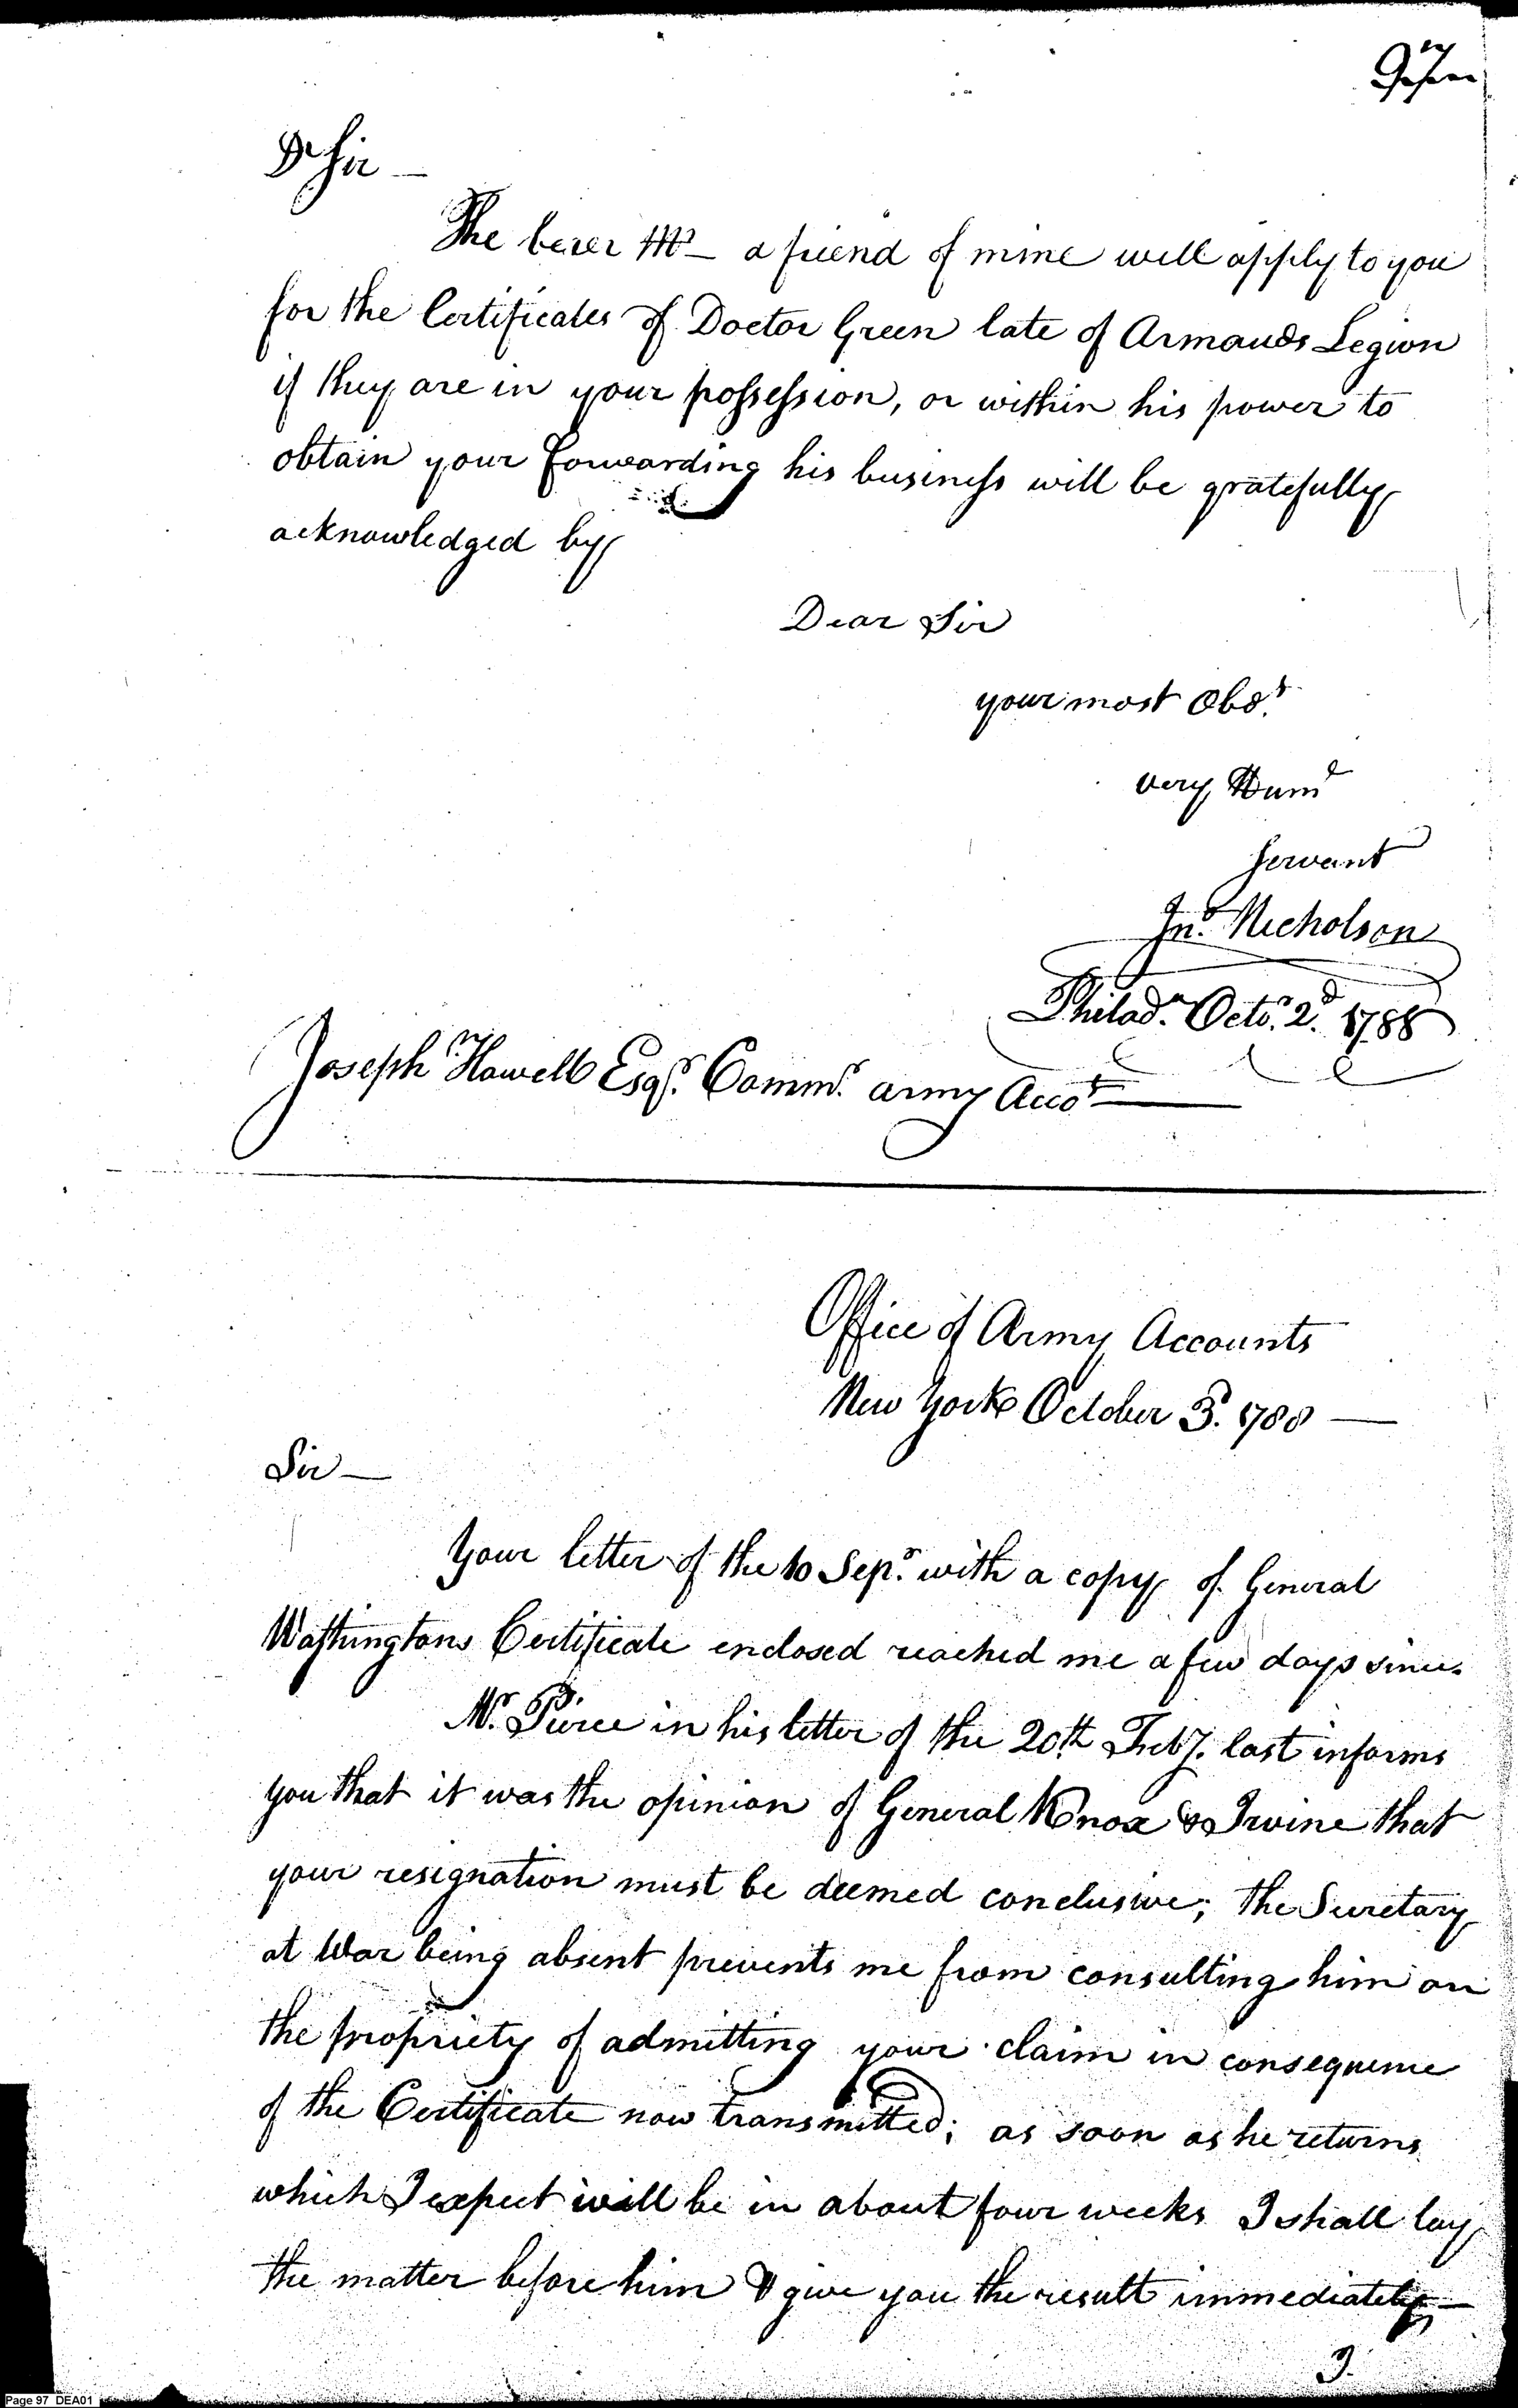 97
Dr Sir —
The berer Mr — a friend of mine will apply to you
for the Certificates of Doctor Green late of Armands Legion
if they are in your possession, or within his power to
obtain your forwarding his business will be gratefully
acknowledged by
Dear Sir
your most Obdt.
very Hume
Servant
Jno. Nicholson
Philada. Octr. 2d. 1788
Joseph Howell Esqr. Commr. army Accot
Office of Army Accounts
New York October 3d. 1788 —
Sir —
Your letter of the 10 Sepr. with a copy of General
Washingtons Certificate enclosed reached me a few days since.
Mr. Pierce in his letter of the 20th. Feby. last informs
you that it was the opinion of General Knox & Irvine that
your resignation must be deemed conclusive; the Secretary
at War being absent prevents me from consulting him on
the propriety of admitting your claim in consequence
of the Certificate now transmitted; as soon as he returns
which I expect will be in about four weeks I shall lay
the matter before him & give you the result immediately —
Page 97 DEA01